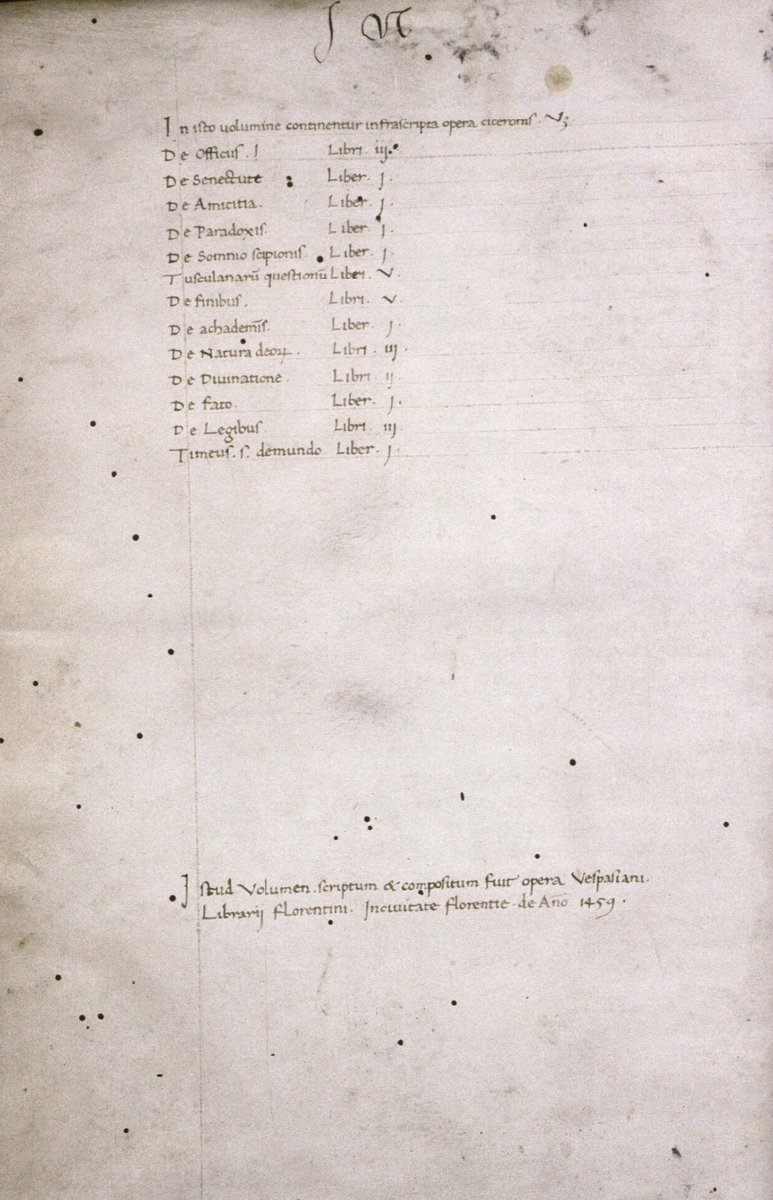 In isto uolumine continentur infrascripta opera ciceronis. Vꝫ
De Officijs. Libri iij.
De Senectute Liber. j.
De Amicitia. Liber. j.
De Paradoxis. Liber. j.
De Somnio scipionis. Liber. j.
Tusculanarū questionū Libri. V.
De finibus. Libri. v.
De achademīs. Liber. j.
De Natura deoꝝ. Libri. iij.
De Diuinatione. Libri ij
De fato. Liber. j.
De Legibus. Libri. iij
Timeus. s. demundo Liber. j.
Istud Volumen. scriptum & compositum fuit opera Vespasiani.
Librarij florentini. Inciuitate florentie. de Año 1459.